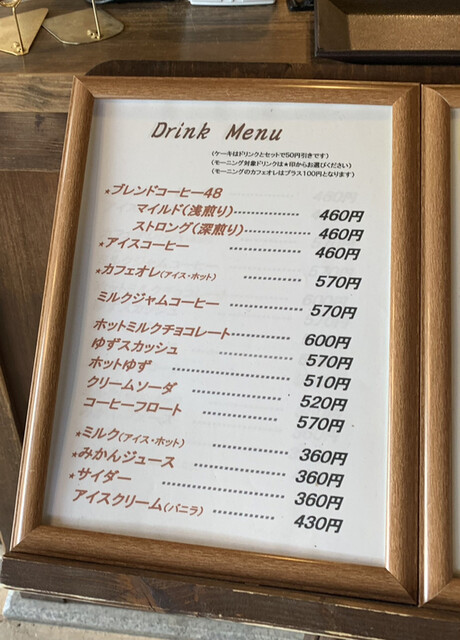 Drink Menu
(ケーキはドリンクとセットで50円引きです)
(モーニング対象ドリンクは★印からお選びください)
(モーニングのカフェオレはプラス100円となります)
★ブレンドコーヒー48
マイルド(浅煎り)················460円
ストロング(深煎り)················460円
★アイスコーヒー ················460円
★カフェオレ(アイス・ホット) ················570円
ミルクジャムコーヒー ················570円
ホットミルクチョコレート················600円
ゆずスカッシュ ················570円
ホットゆず ················510円
クリームソーダ ················520円
コーヒーフロート ················570円
★ミルク(アイス・ホット) ················360円
★みかんジュース ················360円
★サイダー ················360円
アイスクリーム(バニラ) ················430円